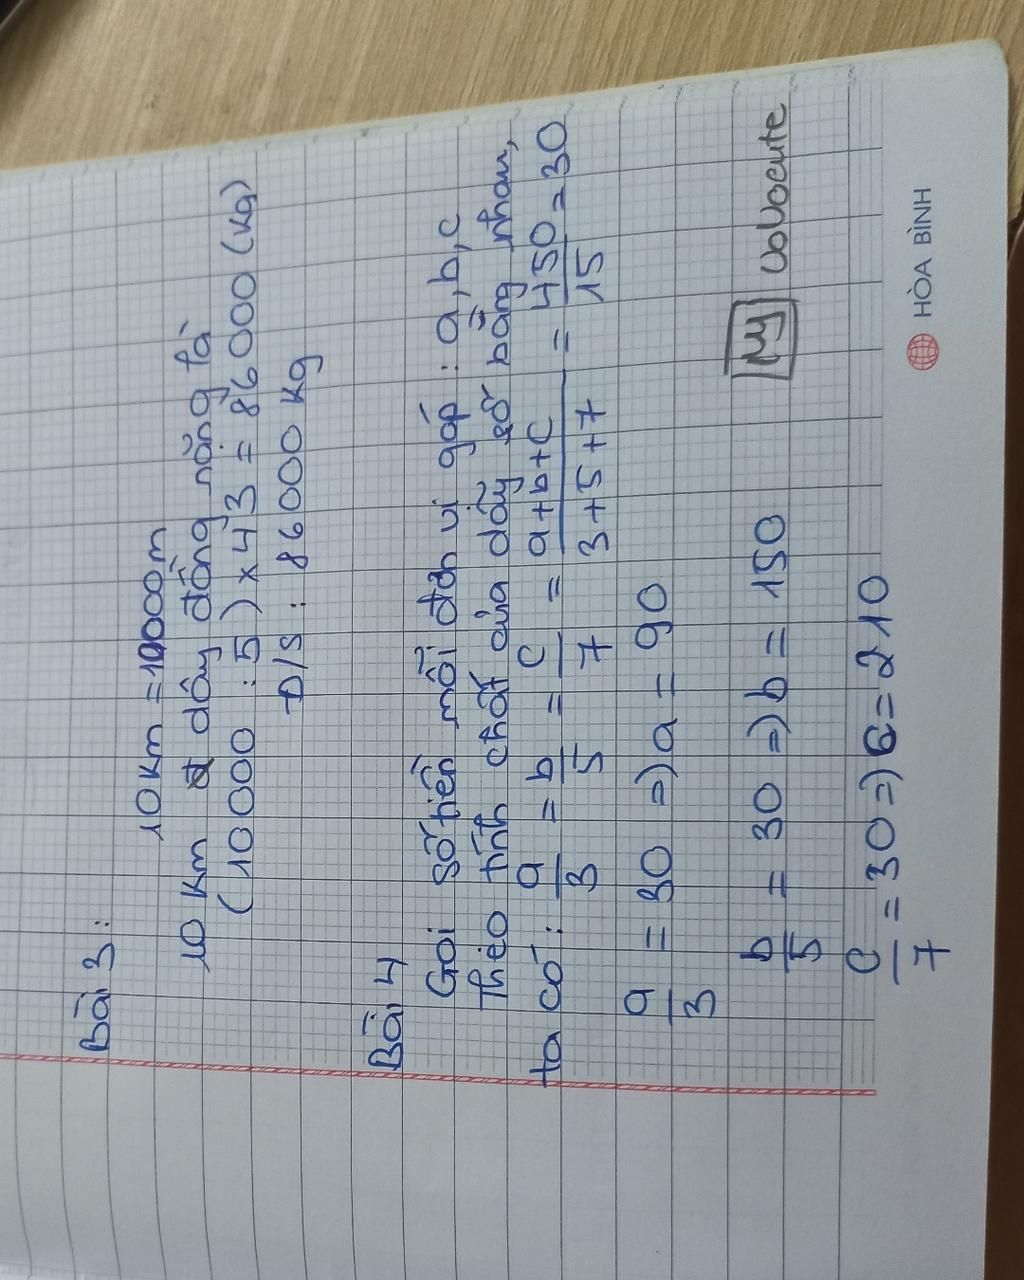 Bài 3:
10 km = 10000m
10 km dây đồng nặng là
(10000 : 5) x 43 = 86000 (kg)
Đ/S : 86000 kg
Bài 4
Gọi số tiền mỗi đơn vị góp : a, b, c
Theo tính chất của dãy số bằng nhau,
ta có: a/3 = b/5 = c/7 = a+b+c/3+5+7 = 450/15 = 30
a/3 = 30 => a = 90
b/5 = 30 => b = 150
My
c/7 = 30 => c = 210
HÒA BÌNH